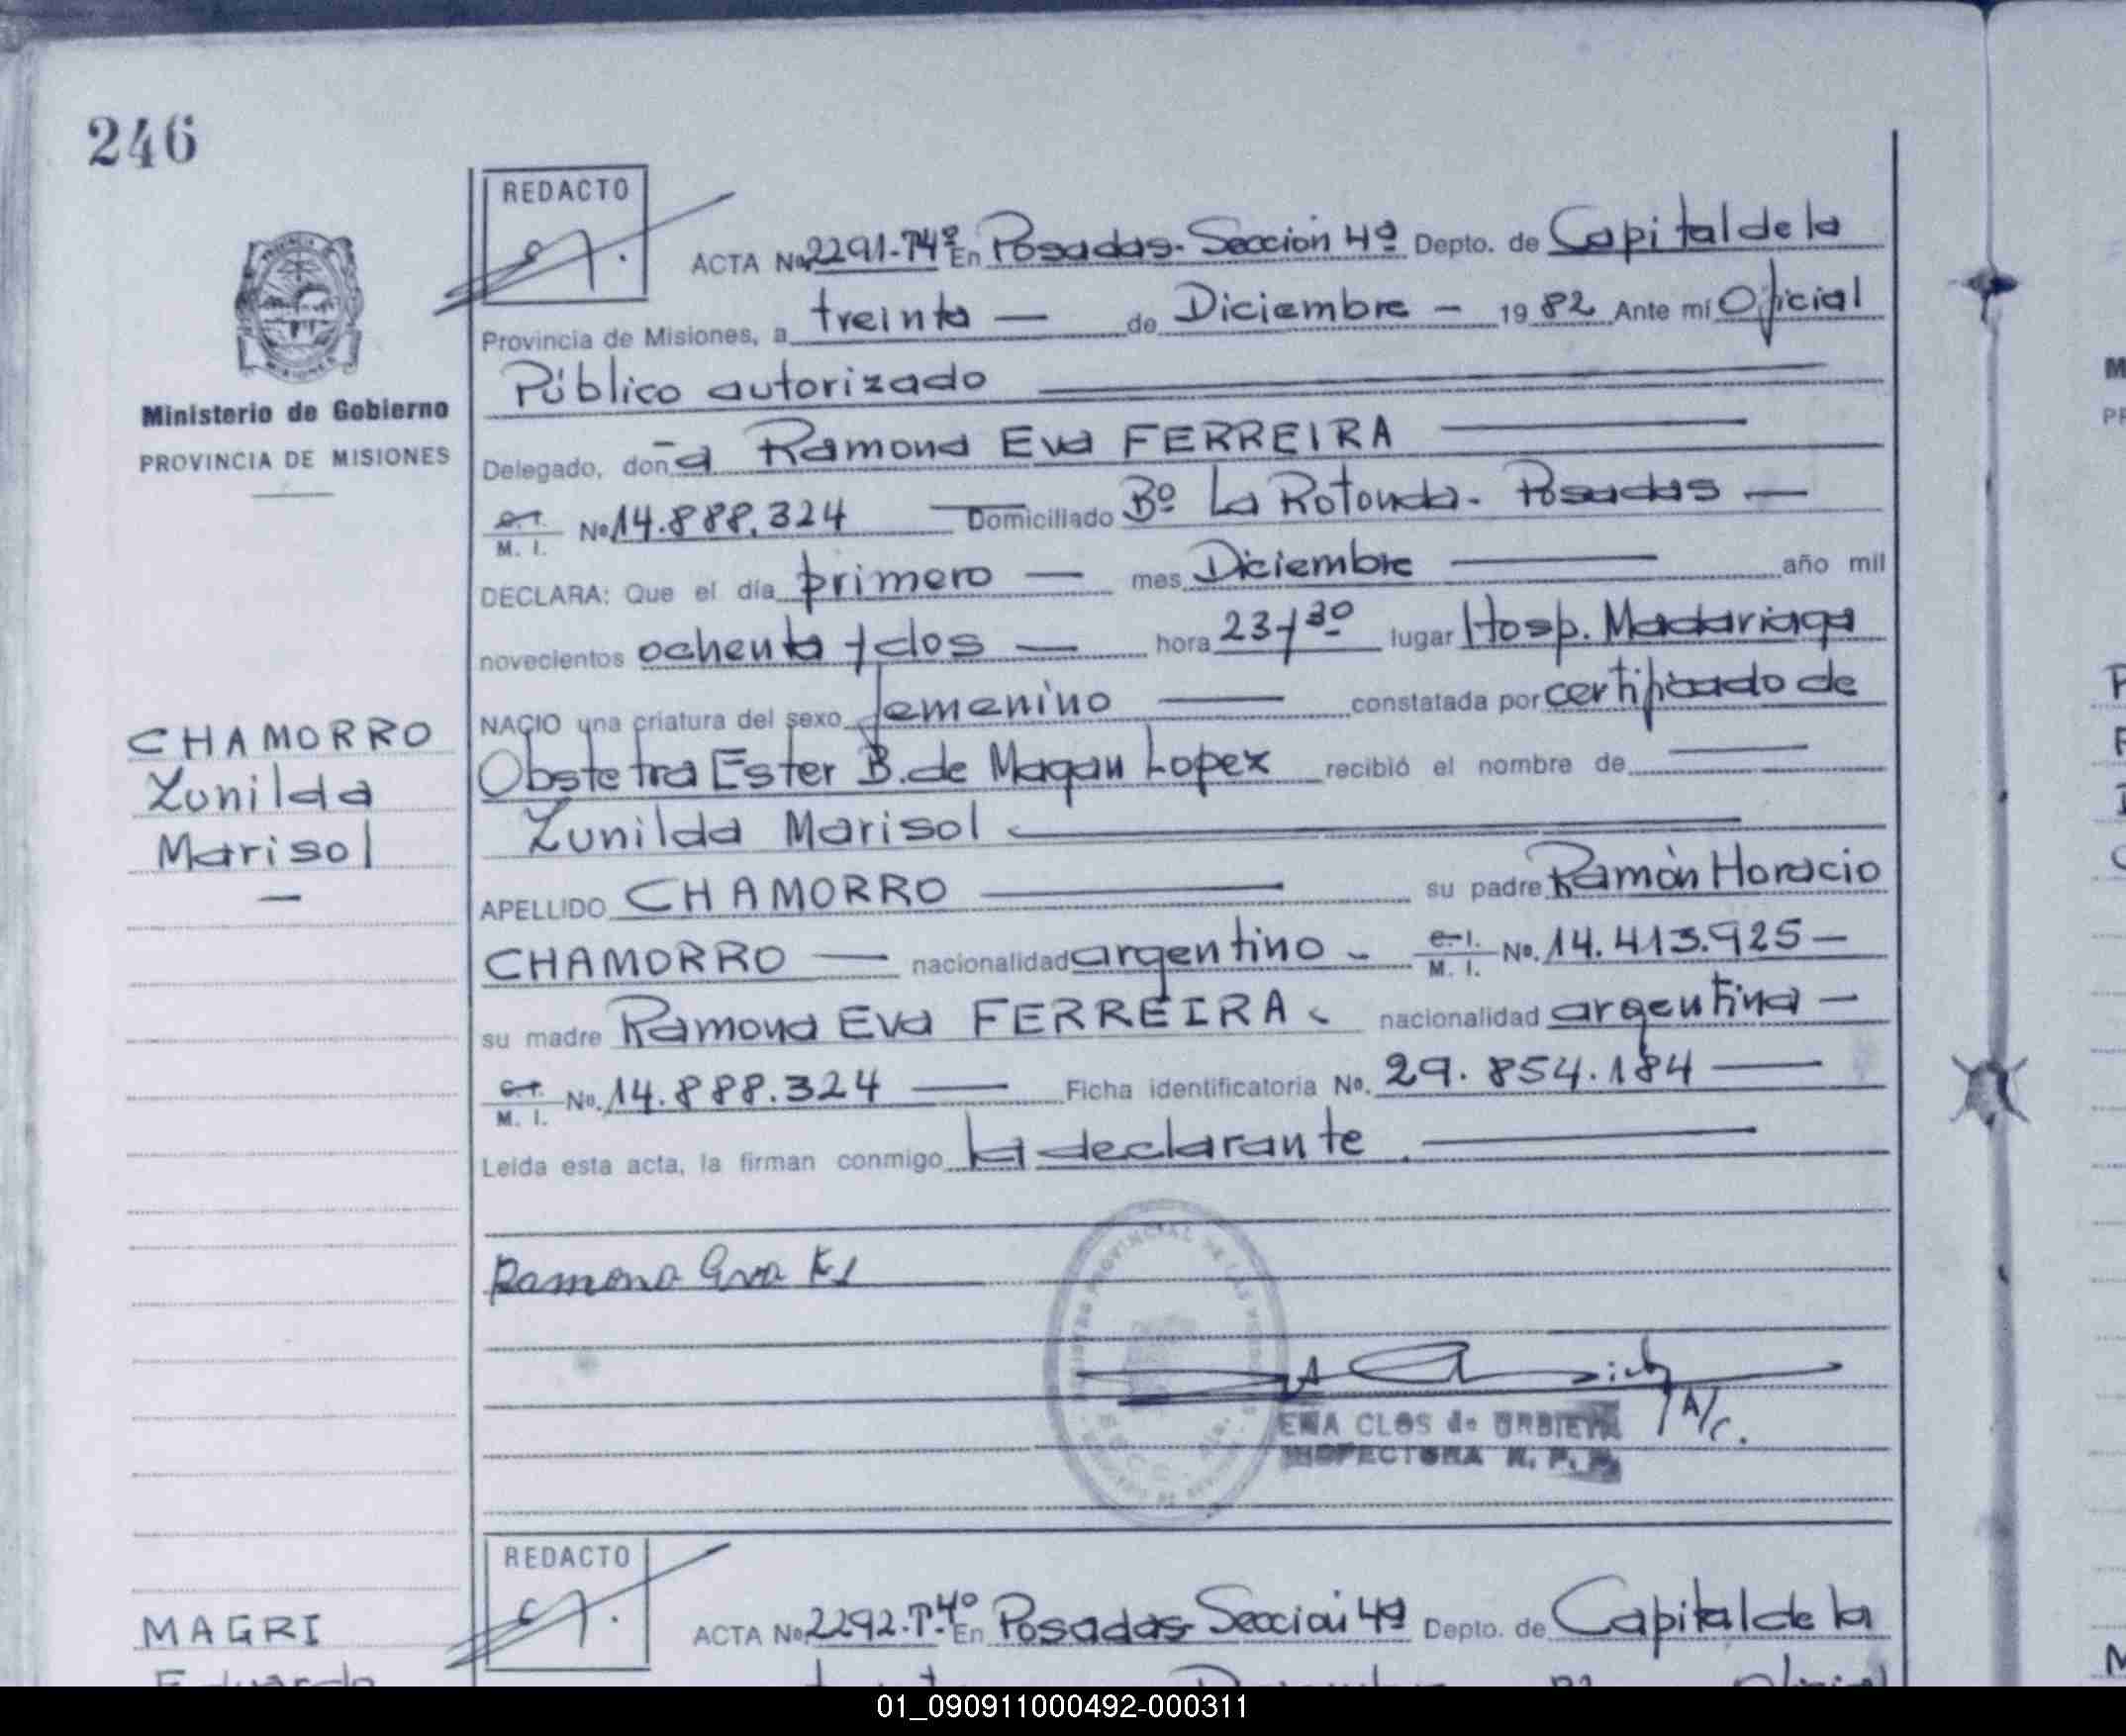 246
REDACTO
ACTA No 2291-T4º En Posadas- Sección 4ª Depto. de Capital de la
Provincia de Misiones, a treinta — de Diciembre — 1982 Ante mí Oficial
Público autorizado
Ministerio de Gobierno
PROVINCIA DE MISIONES
Delegado, doña Ramona Eva FERREIRA
M. I. No 14.888.324 Domiciliado Bº La Rotonda - Posadas —
DECLARA: Que el día primero — mes Diciembre — año mil
novecientos ochenta y dos — hora 23 y 30 lugar Hosp. Madariaga
NACIO una criatura del sexo femenino — constatada por certificado de
CHAMORRO
Zunilda
Marisol
—
Obstetra Ester B. de Magan Lopez recibió el nombre de —
Zunilda Marisol —
APELLIDO CHAMORRO — su padre Ramón Horacio
CHAMORRO — nacionalidad argentino - C. I. M. I. No. 14.413.925 —
su madre Ramona Eva FERREIRA - nacionalidad argentina —
M. I. No. 14.888.324 — Ficha identificatoria No. 29.854.184 —
Leída esta acta, la firman conmigo la declarante. —
Ramona Eva
A/c.
EMA CLOS de URBIETA
INSPECTORA R. P. P.
REDACTO
ACTA No 2292-T-4º En Posadas- Sección 4ª Depto. de Capital de la
MAGRI
Eduardo
01_090911000492-000311